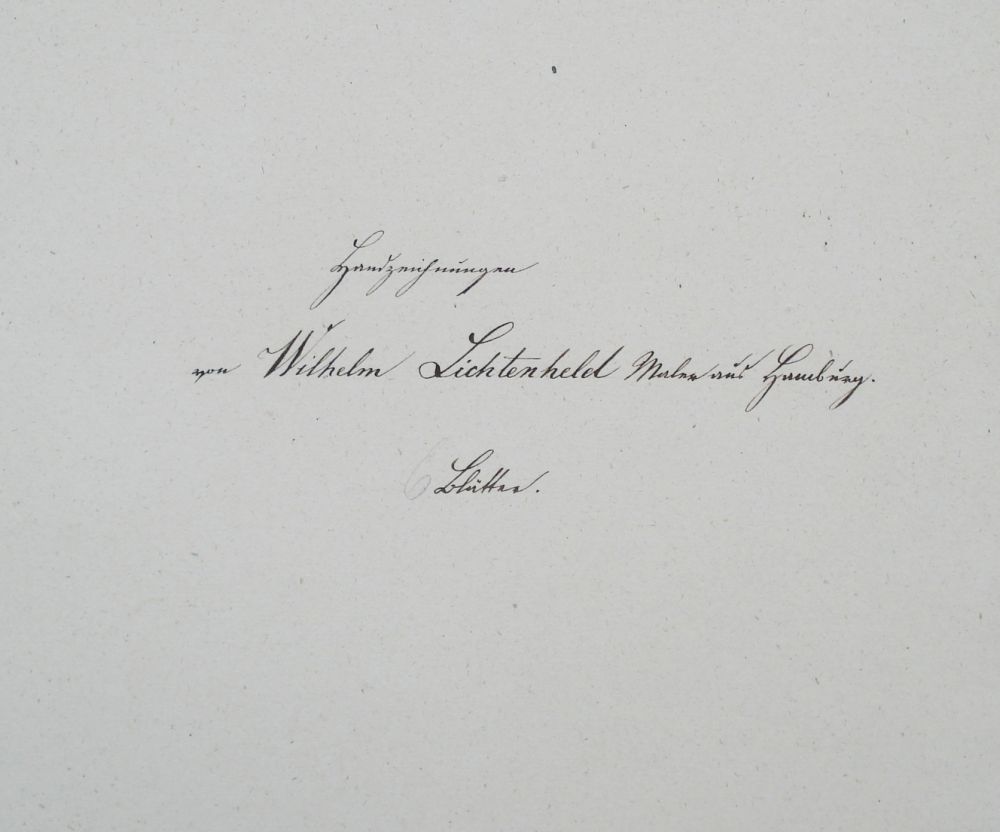 Handzeichnungen
von Wilhelm Lichtenheld Maler aus Hamburg.
6 Blätter.